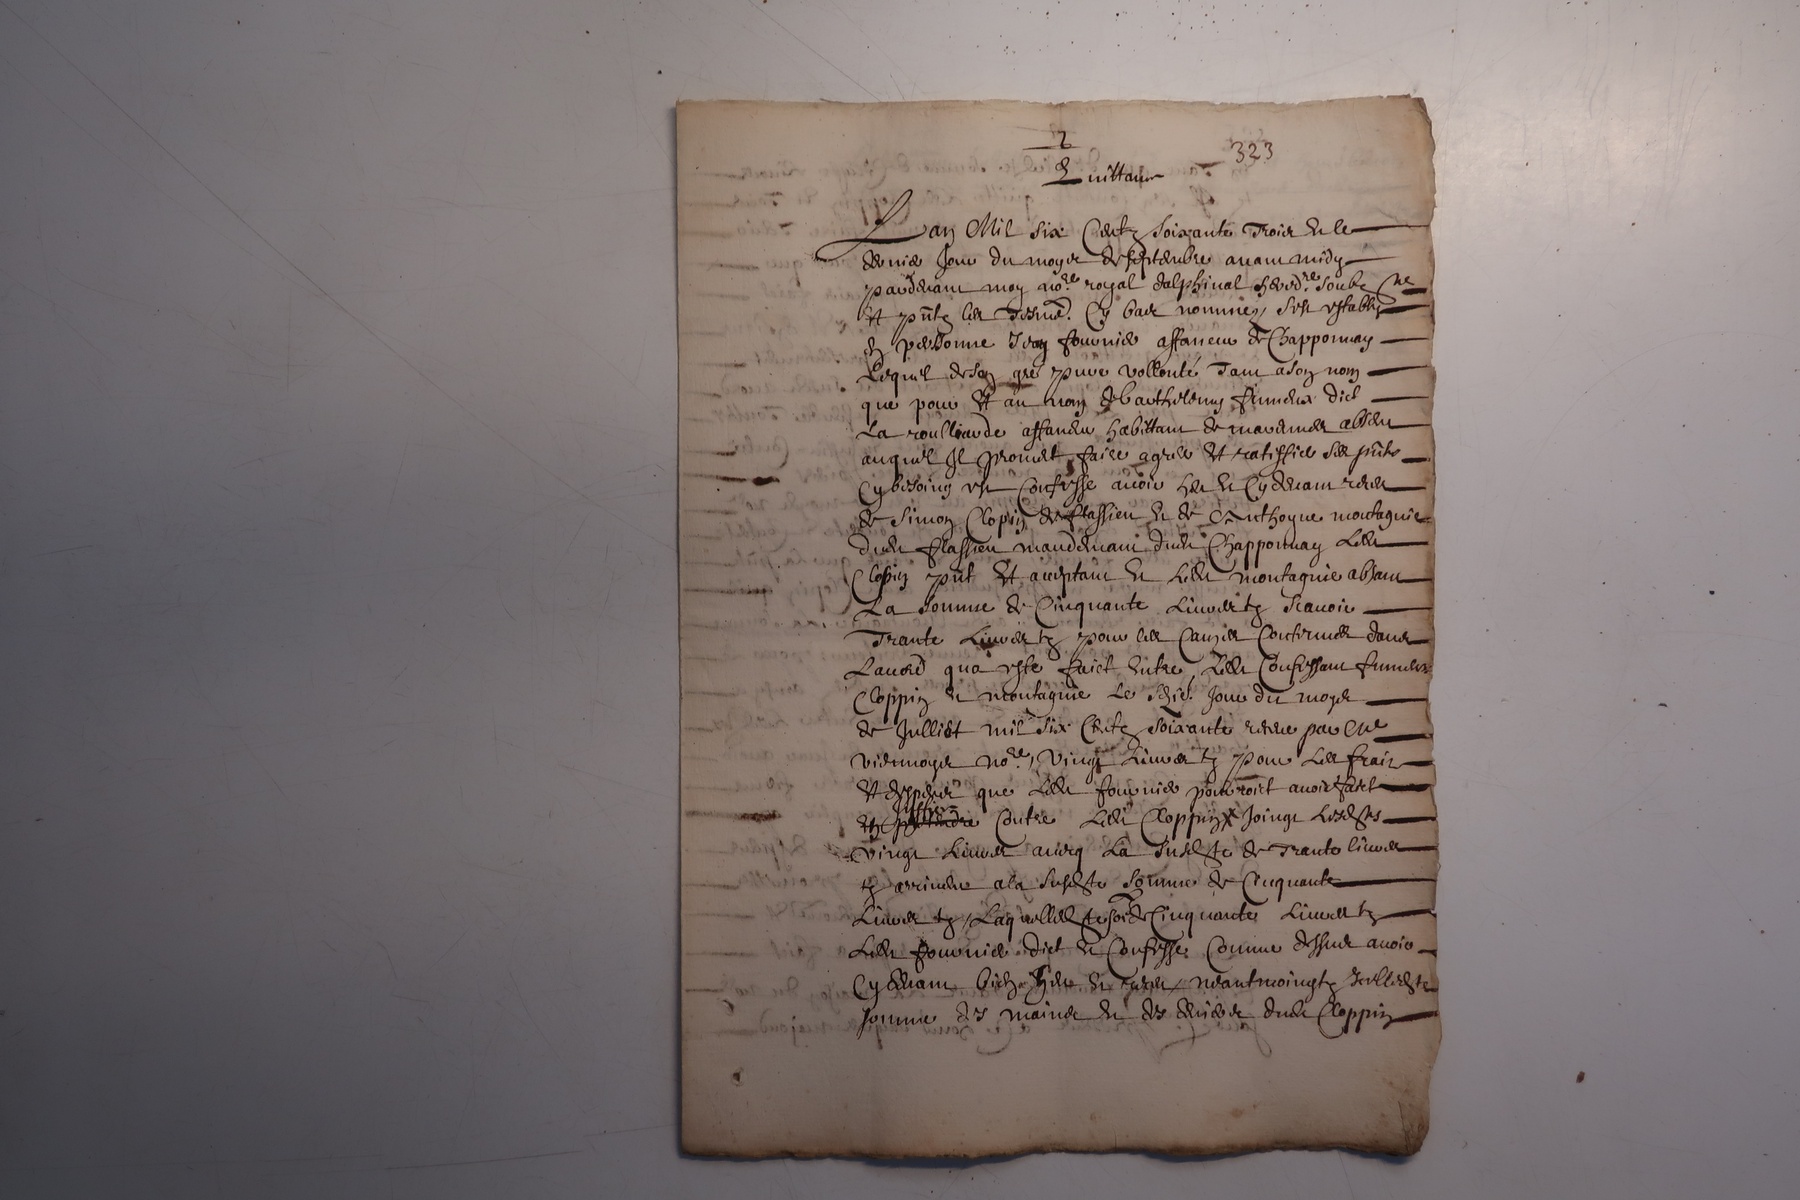 2
323
Quittance
Lan Mil six Centz soixante Trois & le
dernier Jour du moys de septembre auant midy
pardeuant moy no.re royal dalphinal hered.re soubz.ne
et pntz les Tesmo. Cy bas nommez, sest establi
en personne Jean fournier affaneur de Chapponnay
Lequel de son gre pure vollonté Tant a son nom
que pour et au nom de barthelemy dict
La roulliarde affaneur habittant de marennes absen
auquel Il promet faire agreer et ratiffier ses pntes
sy besoing est Confesse auoir heu & Cy deuant receu
de Simon Clopin de flassieu & de Anthoyne montagnier
dudt flassieu mandemant dudt Chapponnay Ledt
Clopin pnt et aceptant & Ledt montagnier absant
La somme de Cinquante Liures tz scauoir
Trante Liures tz pour les Causes Contenues dans
Lacord qua este faict entre Ledt Confessant
Cloppin & montagnier Le Jour du moys
de Julliet mil six Centz soixante receu par me
viennoys no.re, vingt Liures tz pour Les frais
et despens que Ledt fournier pourroict auoir faict
Contre Ledt Cloppin Joingt Lesdtes
vingt Liures auecq La susdte de Trante liures
tz arriuent a la susdte somme de Cinquante
Liures tz, Laquelle dte so.e de Cinquante Liures tz
Ledt fournier dict & Confesse Comme dessus auoir
Cy deuant bien heu & receu, neantmoingtz Jcelle dte
somme des mains & des deniers dudt Cloppin